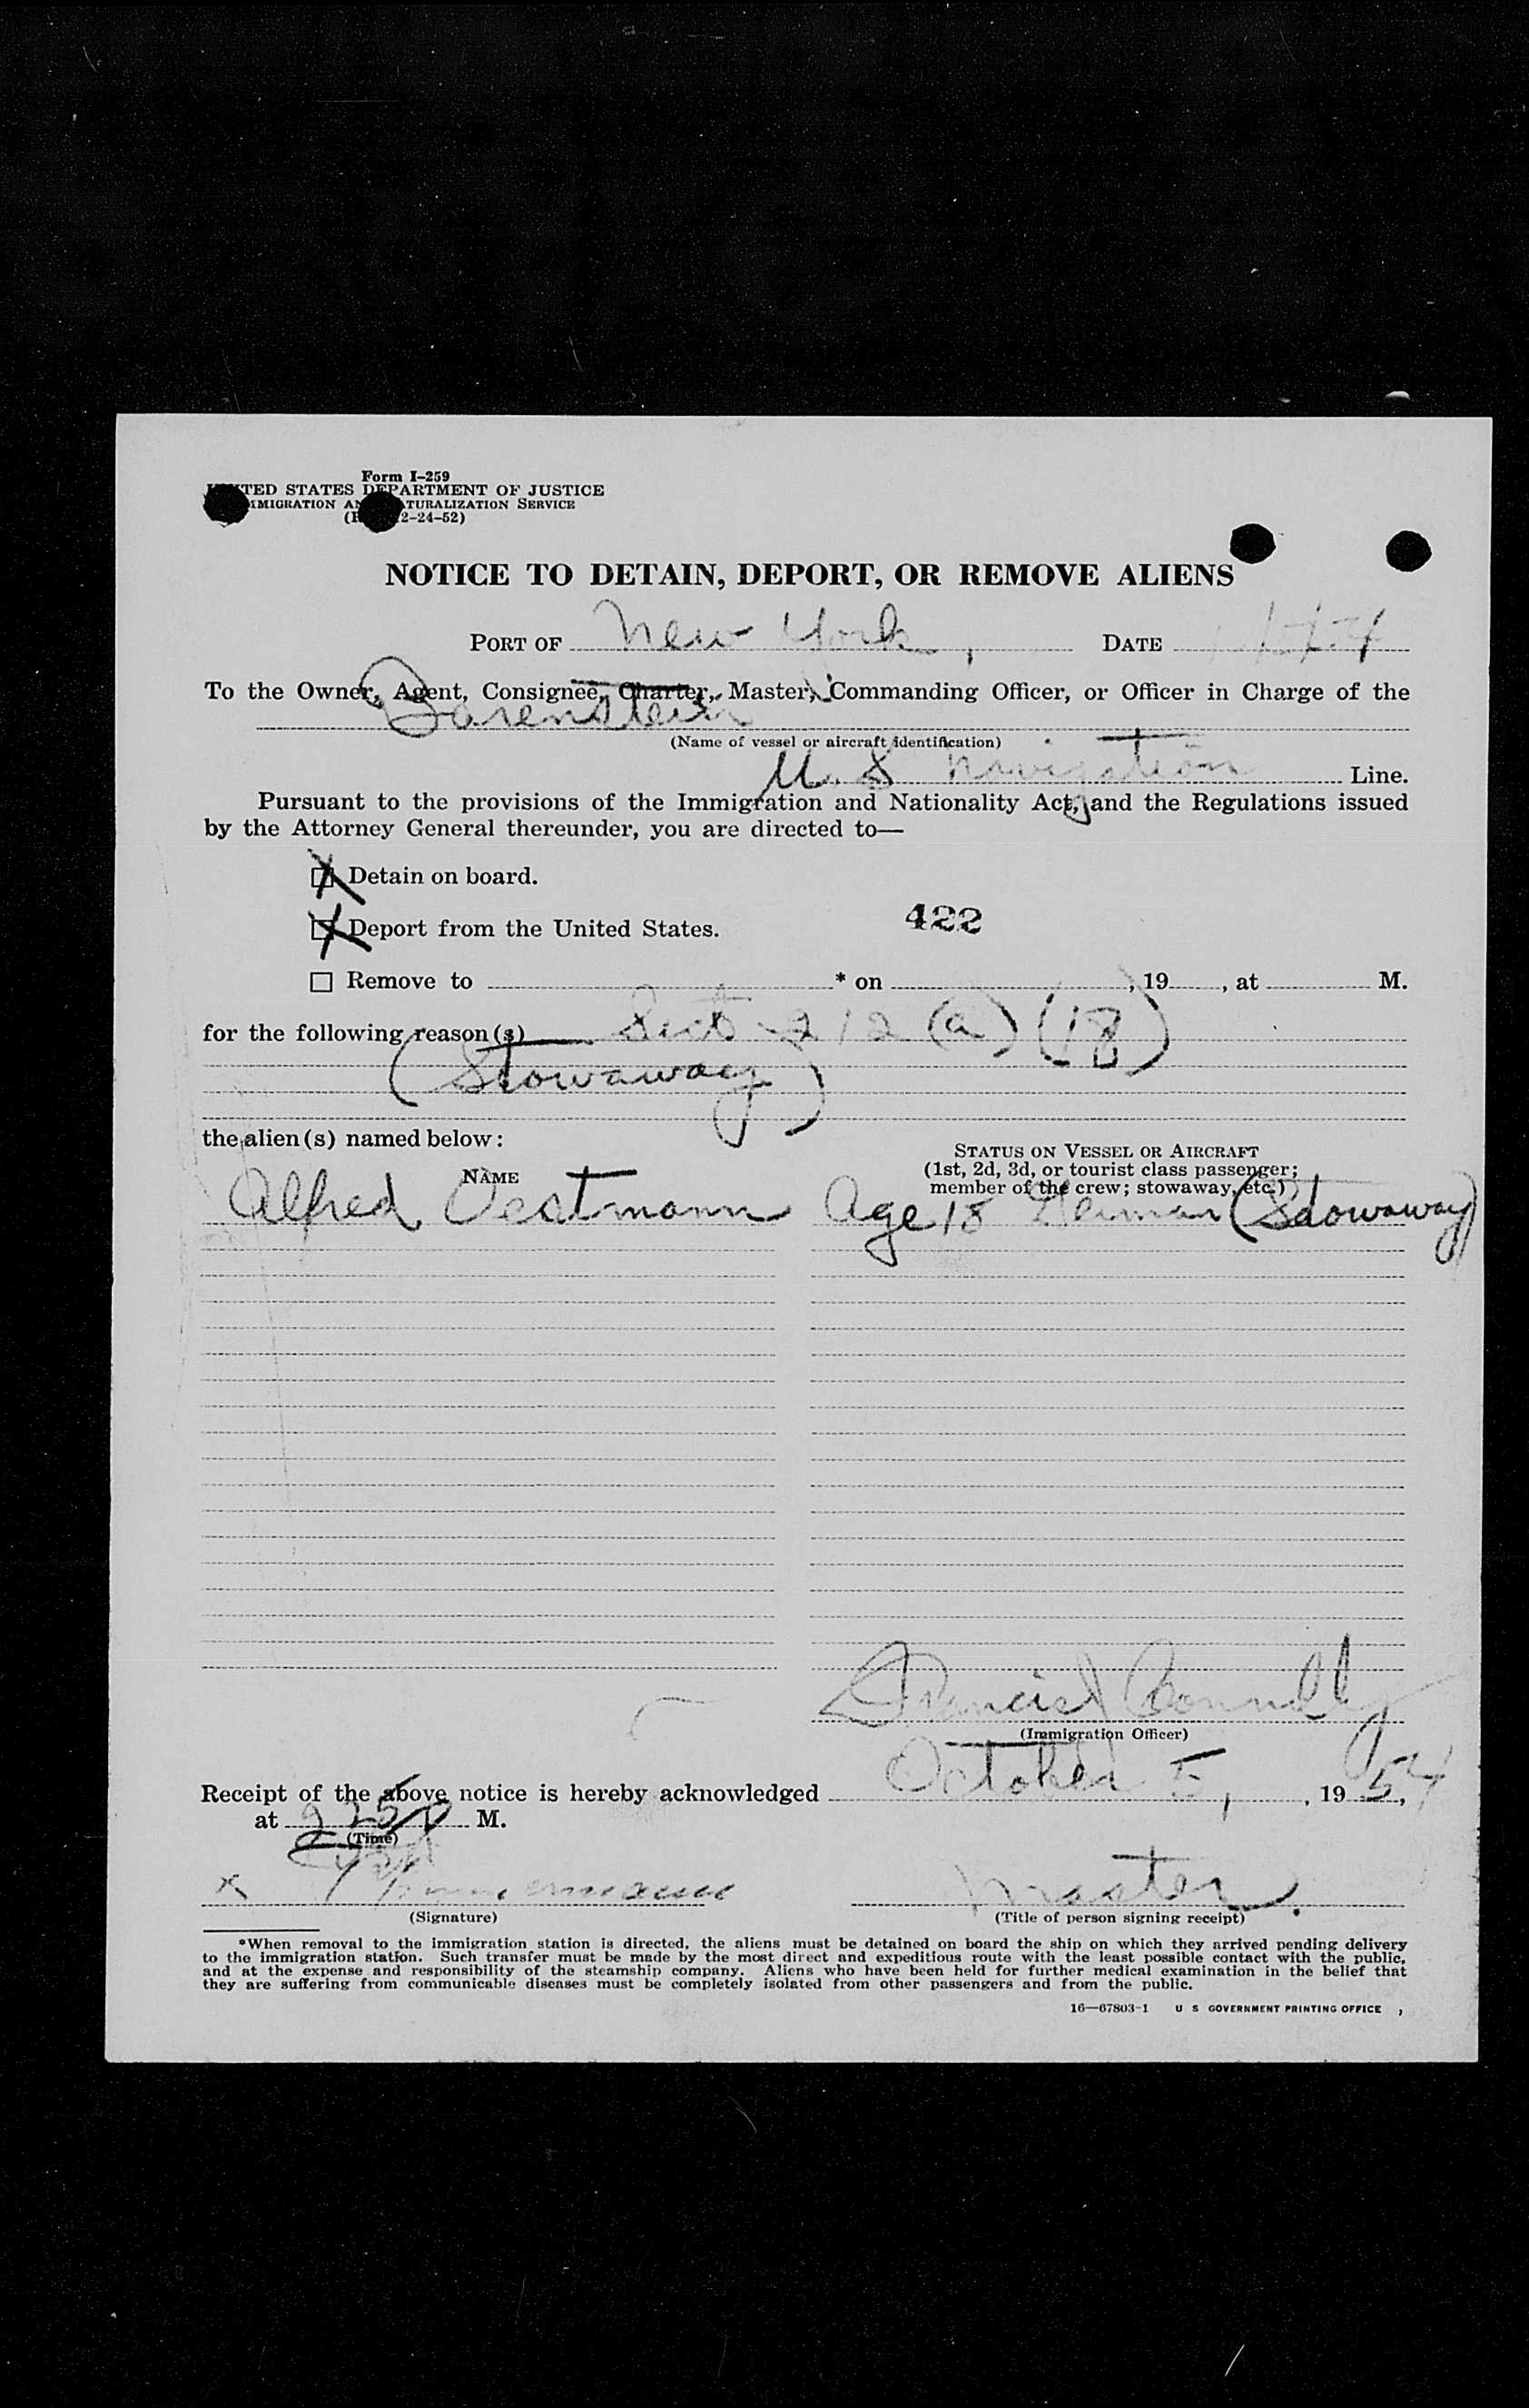 Form I-259
UNITED STATES DEPARTMENT OF JUSTICE
IMMIGRATION AND NATURALIZATION SERVICE
2-24-52)
NOTICE TO DETAIN, DEPORT, OR REMOVE ALIENS
PORT OF New York, DATE
To the Owner, Agent, Consignee, Charter, Master, Commanding Officer, or Officer in Charge of the
Barenstein
(Name of vessel or aircraft identification)
U. S Navigation Line.
Pursuant to the provisions of the Immigration and Nationality Act, and the Regulations issued
by the Attorney General thereunder, you are directed to—
X Detain on board.
X Deport from the United States. 422
☐ Remove to * on , 19 , at M.
for the following reason(s) Sect 212 (a) (18)
(Stowaway)
the alien(s) named below:
NAME
STATUS ON VESSEL OR AIRCRAFT
(1st, 2d, 3d, or tourist class passenger;
member of the crew; stowaway, etc.)
Alfred Oestmann Age 18 German (Stowaway)
Francis Connolly
(Immigration Officer)
Receipt of the above notice is hereby acknowledged October 5, , 19 54,
at M.
(Time)
x
(Signature)
Master.
(Title of person signing receipt)
*When removal to the immigration station is directed, the aliens must be detained on board the ship on which they arrived pending delivery
to the immigration station. Such transfer must be made by the most direct and expeditious route with the least possible contact with the public,
and at the expense and responsibility of the steamship company. Aliens who have been held for further medical examination in the belief that
they are suffering from communicable diseases must be completely isolated from other passengers and from the public.
16—67803-1 U S GOVERNMENT PRINTING OFFICE